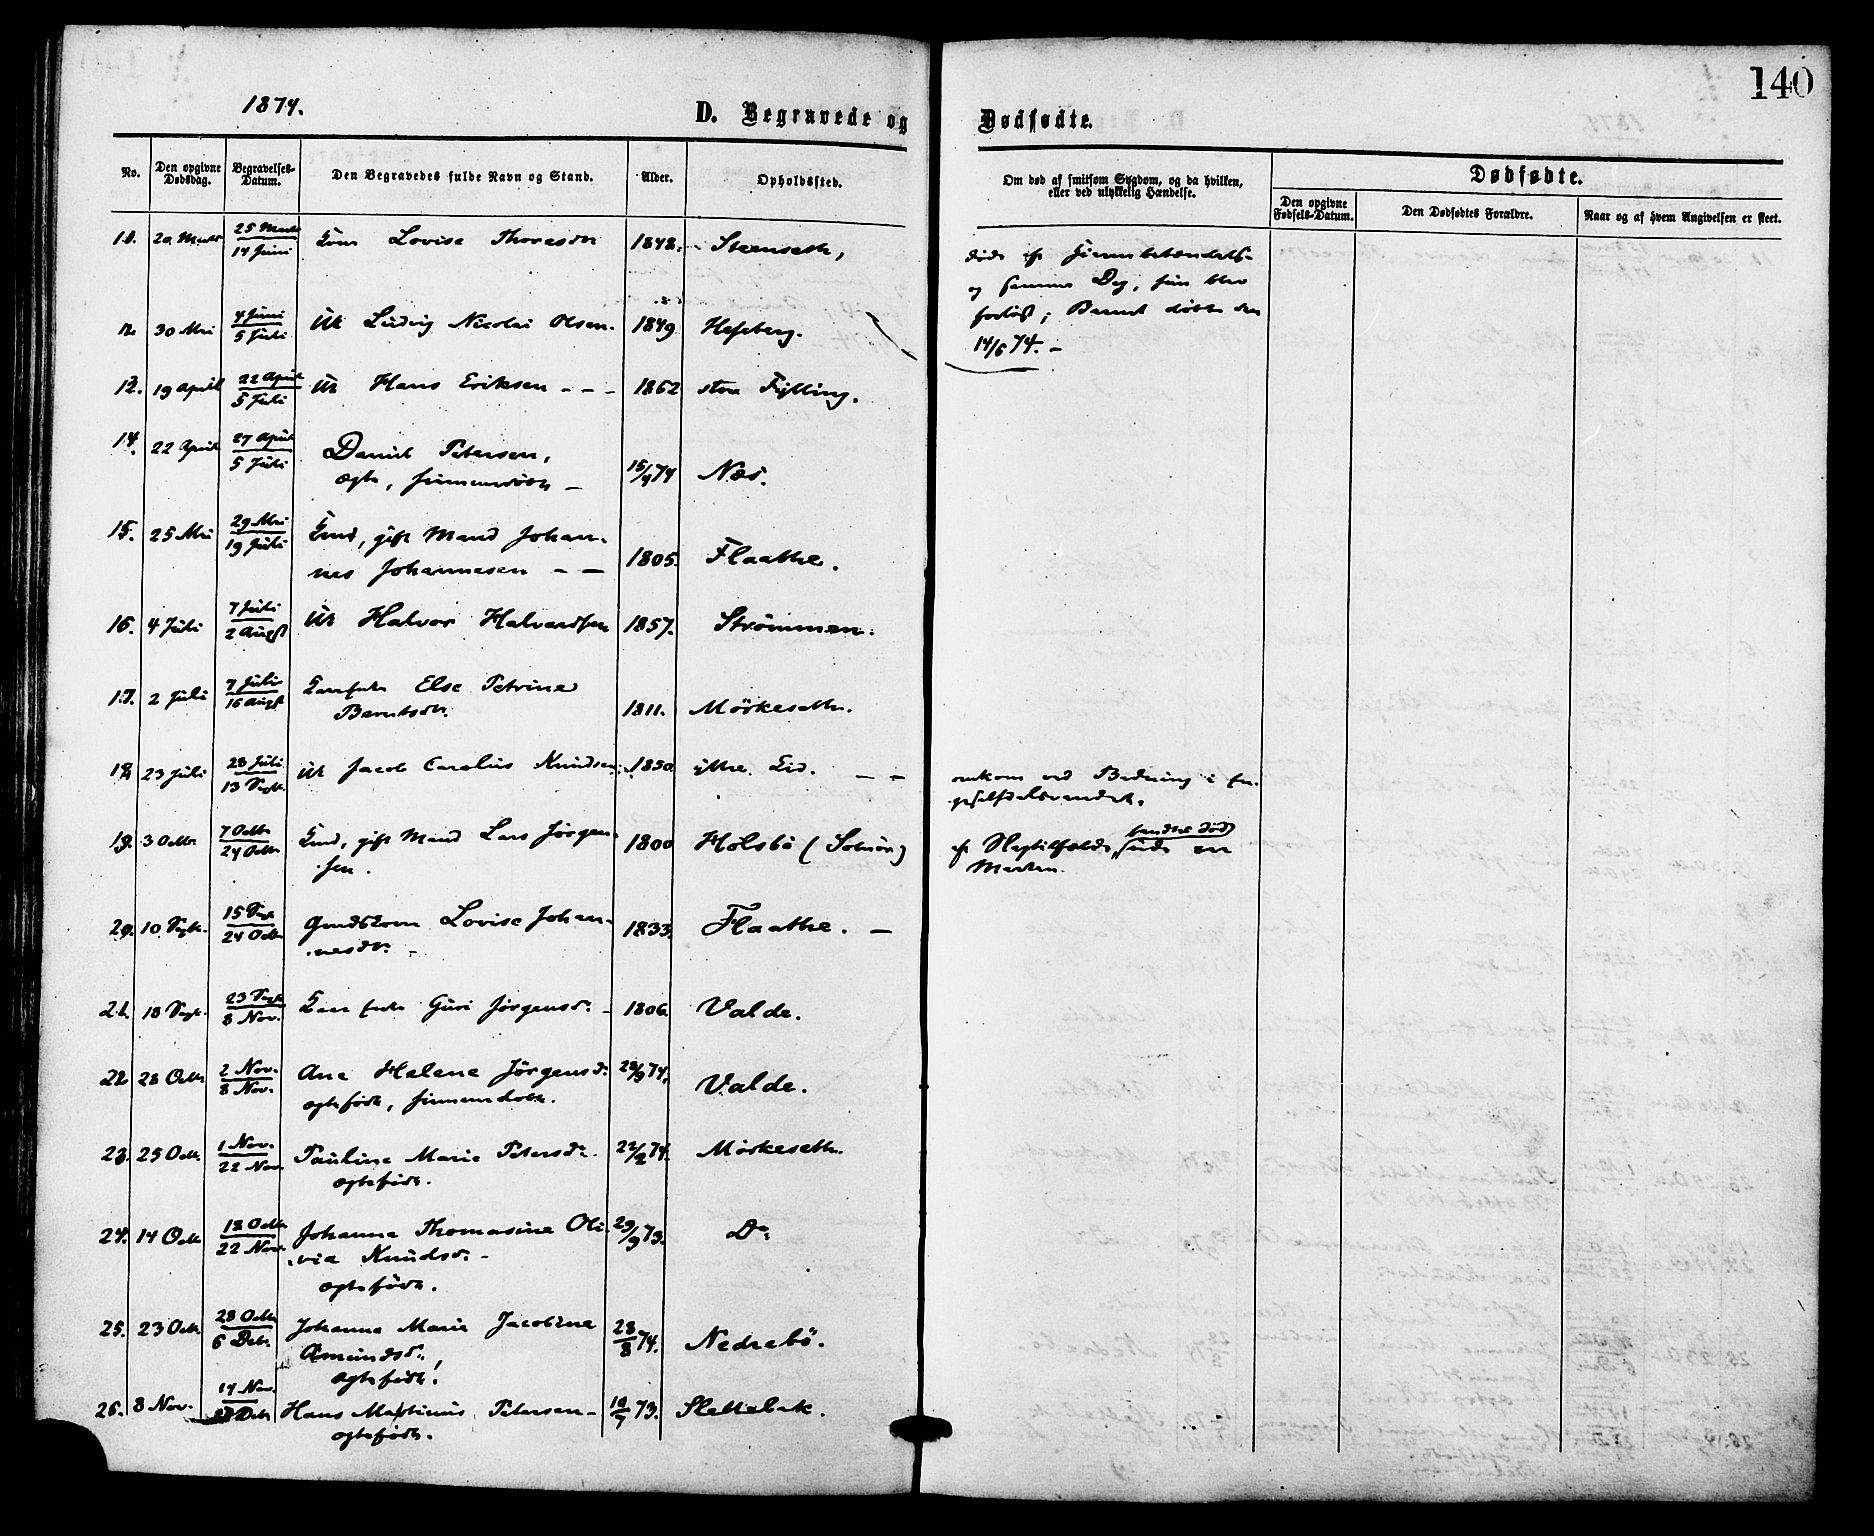 140
1874.
D. Begravede og Dødfødte.
No.
Den opgivne Dødsdag.
Begravelses-Datum.
Den Begravedes fulde Navn og Stand.
Alder.
Opholdssted.
Om død af smitsom Sygdom, og da hvilken, eller ved ulykkelig Hændelse.
Dødfødte.
Den opgivne Fødsels-Datum.
Den Dødfødtes Forældre.
Naar og af hvem Angivelsen er skeet.
11. 20 Marts 25 Marts 14 Juni Lovise Thoresdr 1848.
og samme Dag, hun blev
forløst; Barnet døbt den
14/6 74. -
12. 30 Mai 4 Juni 5 Juli Uk Ludvig Nicolai Olsen. 1849
13. 19 April 22 April 5 Juli Uk Hans Eriksen - - - 1862 store Fylling.
14. 22 April 27 April 5 Juli Daniel Petersen, 15/4 74 Næs.
ægte, hjemmedøbt -
15. 25 Mai 29 Mai 19 Juli gift Mand Johan-
nes Johannesen - - 1805. Flaathe.
16. 4 Juli 7 Juli 2 Augst Uk Halvor Halvardsen 1857. Strömmen.
17. 2 Juli 7 Juli 16 Augst Else Petrine
Berntsdr. 1811. Mörkeseth.
18. 23 Juli 28 Juli 13 Septr. Uk Jacob Carolius Knudsen. 1850 ytre Eid. - -
omkom ved Badning i
19. 3 Octbr. 7 Octbr 24 Octbr gift Mand Lars Jørgen-
sen. 1800
af Slagtilfælde, fandtes død ude
Marken.
20. 10 Septr. 15 Sept 24 Octbr Lovise Johan-
nesdr. - 1833. Flaathe. -
21. 18 Sept. 23 Sept 8 Nov. Guri Jørgensdr. - 1806. Valde.
22 28 Octbr 2 Nov. 8 Nov. Ane Helene Jørgensdr. 28/9 74. Valde.
ægtefødt, hjemmedøbt.
23. 25 Octbr. 1 Nov. 22 Nov. Pauline Marie Petersdr. 22/2 74. Mörkeseth.
ægtefødt.
24. 14 Octbr 18 Octbr 22 Nov. Johanne Thomasine Oli- 29/9 73. Do
via Knudsdr. -
ægtefødt.
25. 23 Octbr 28 Octbr 6 Debr. Johanne Marie Jacobine 28/8 74. Nedrebö.
Amundsdr.,
ægtefødt.
26. 8 Nov. 14 Nov. Hans Martinus Petersen - 73. Slettebak.
ægtefødt.